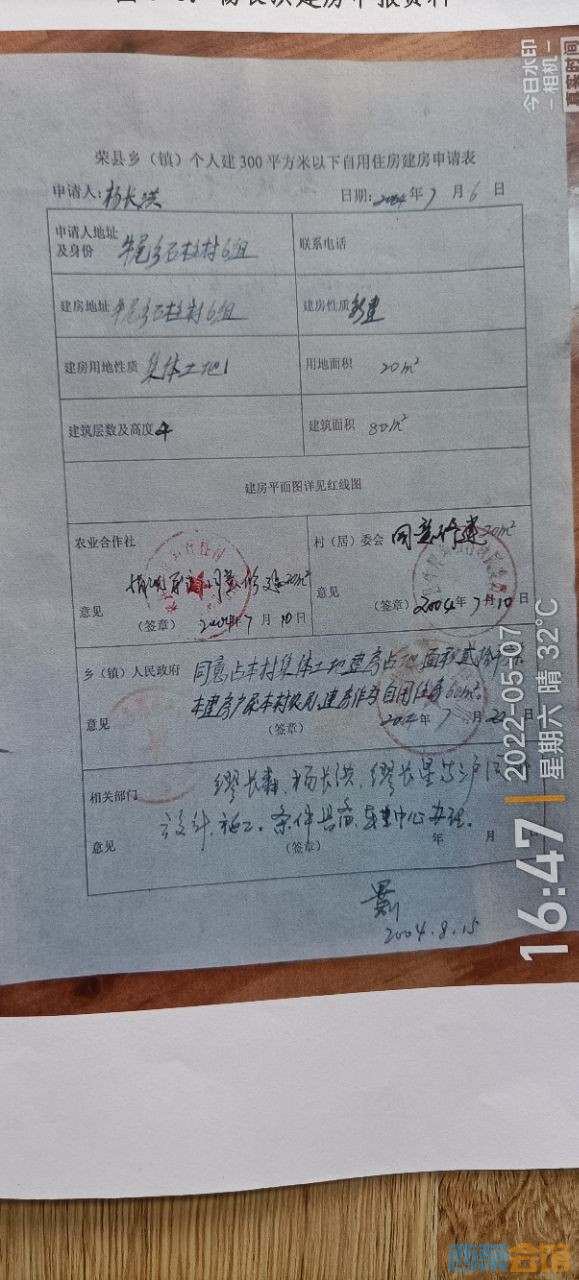 杨长洪建房申报资料
荣县乡（镇）个人建300平方米以下自用住房建房申请表
申请人：杨长洪 日期：2004年7月6日
申请人地址
及身份 牛尾乡石柱村6组 联系电话
建房地址 牛尾乡石柱村6组 建房性质 新建
建房用地性质 集体土地 用地面积 20m²
建筑层数及高度 4 建筑面积 80m²
建房平面图详见红线图
农业合作社 村（居）委会 同意修建20m²
同意修建20m²
意见 意见
（签章） 2004年7月10日 （签章） 2004年7月10日
乡（镇）人民政府 同意占本村集体土地建房占地面积贰拾
本建房户系本村农户，建房作为自用住房60m²。
意见 （签章） 2004年7月22日
相关部门 缪长春、杨长洪、缪长星等三户
设计、施工、条件具备，中心办理。
意见 （签章） 年 月
2004.8.15
今日水印
-相机-
真实时间
16:47
2022-05-07
星期六 晴 32℃
西祠会馆